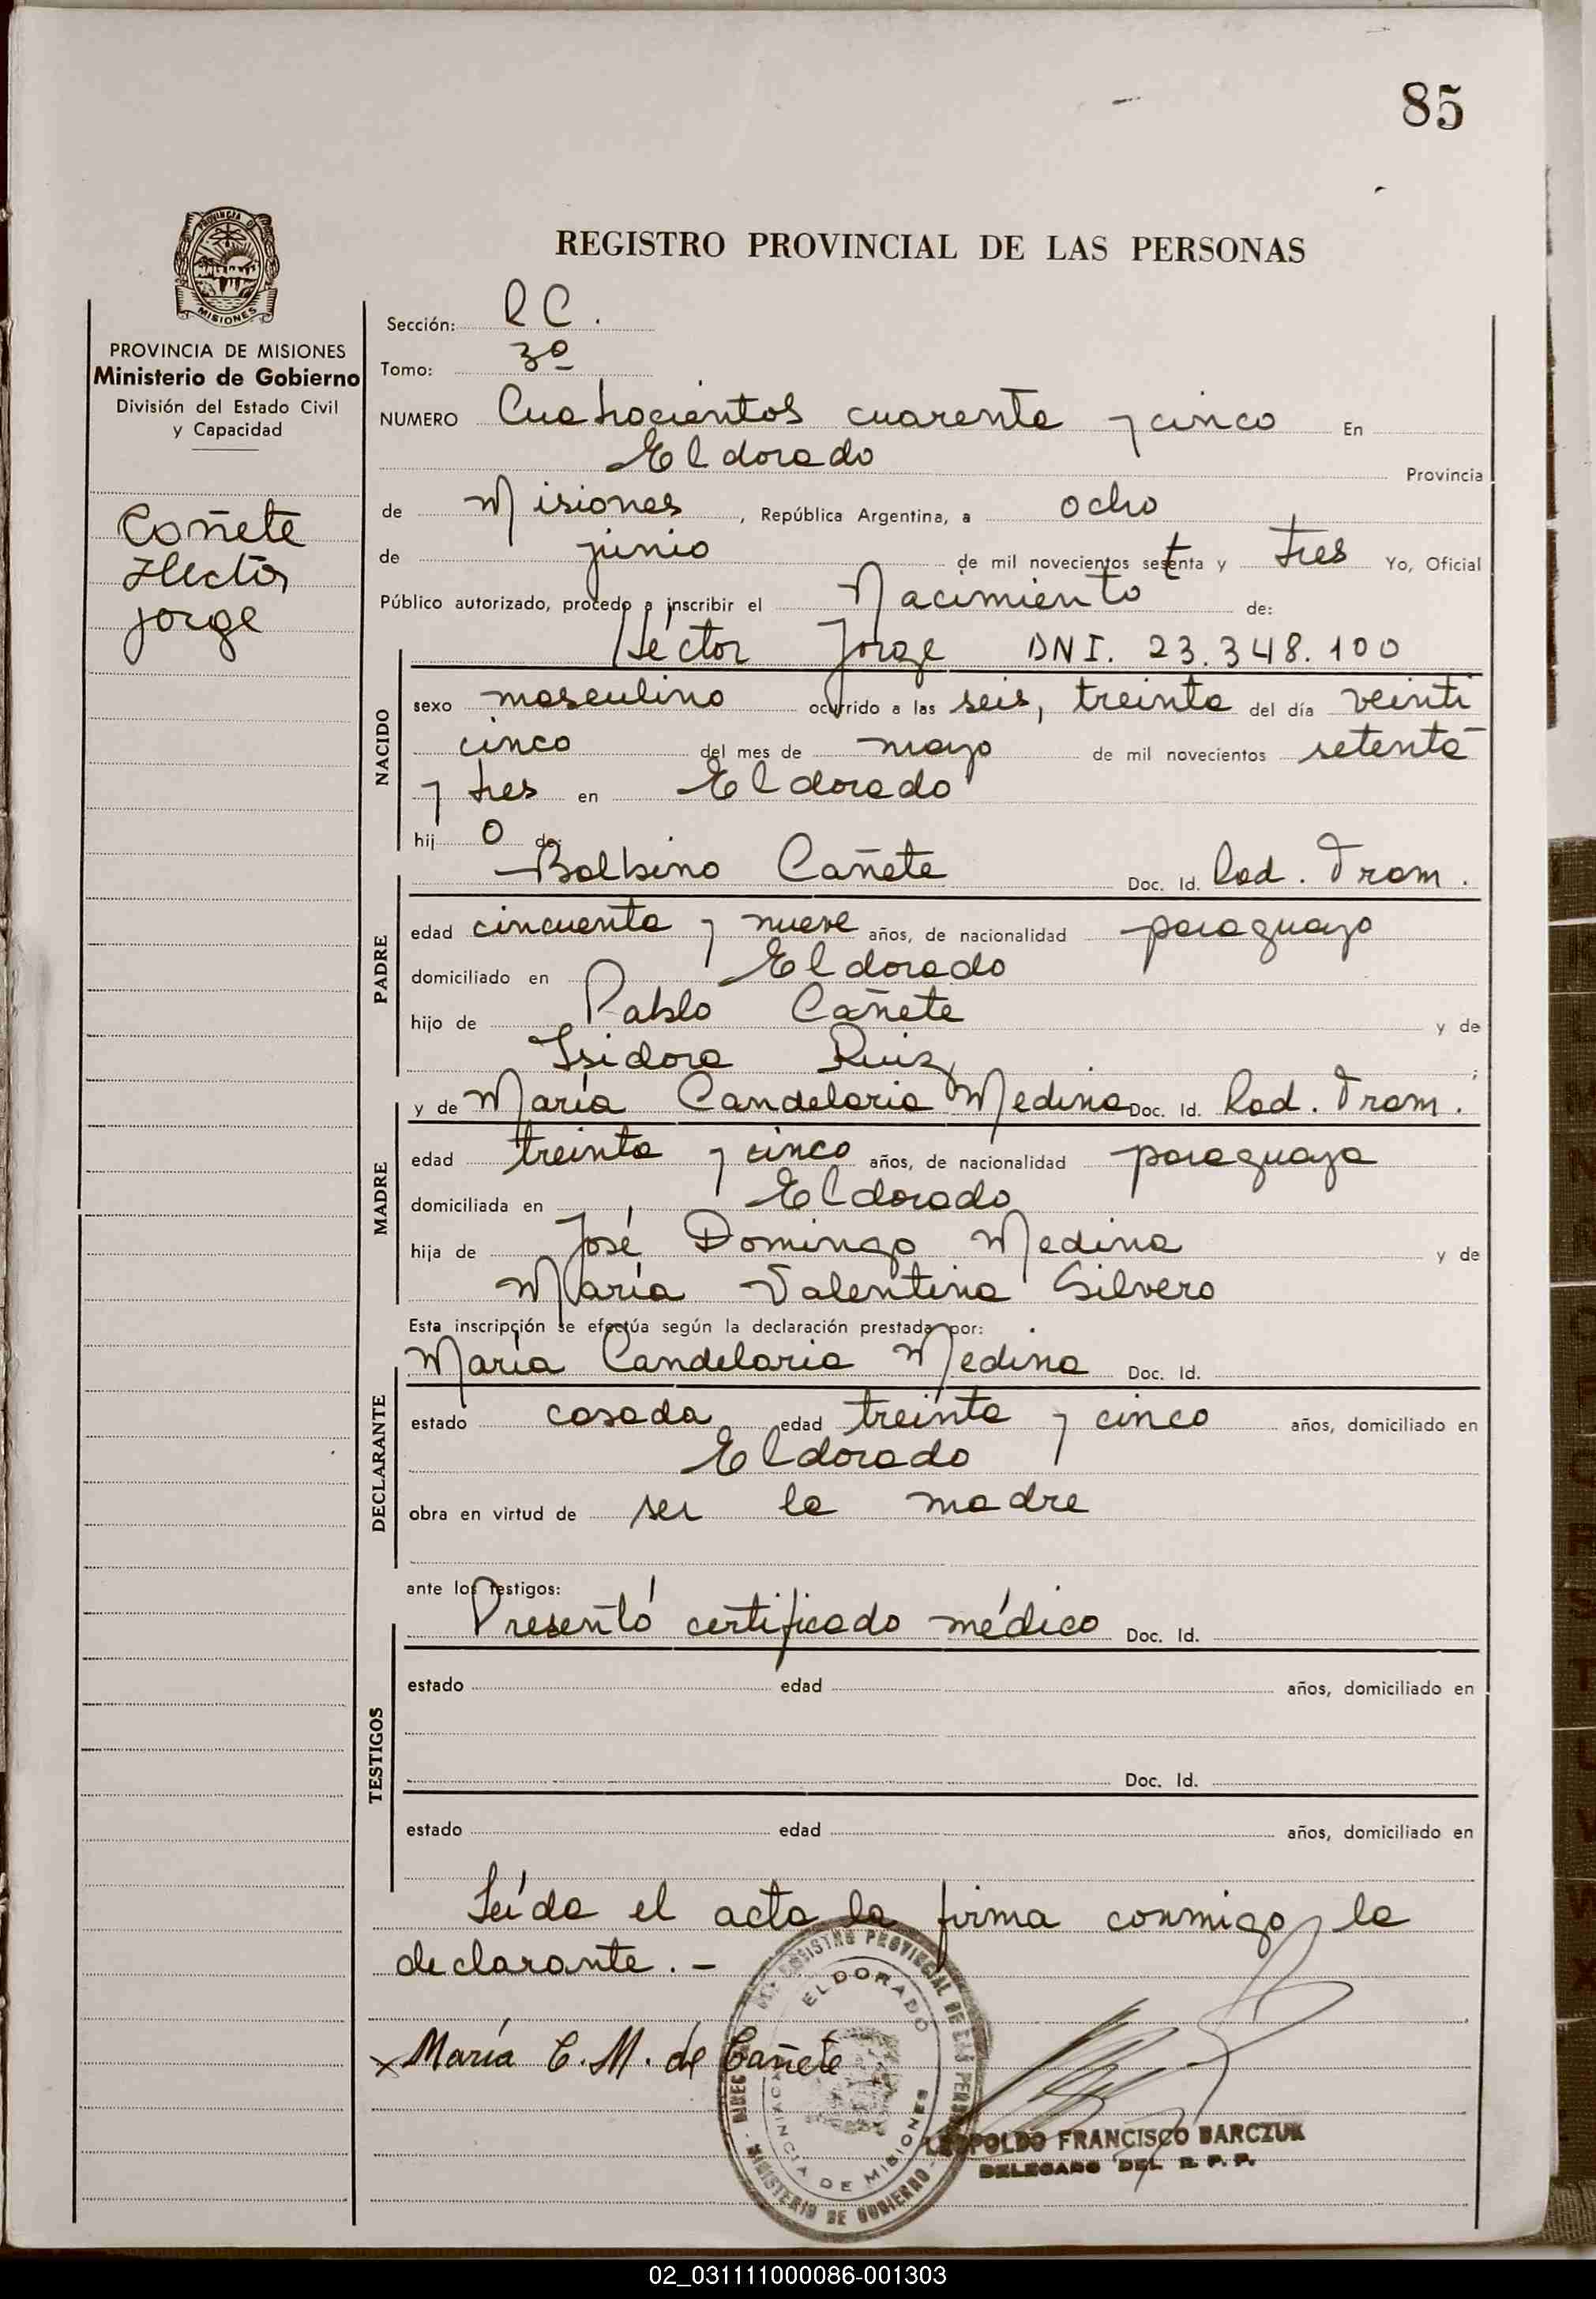 85
PROVINCIA DE
MISIONES
PROVINCIA DE MISIONES
Ministerio de Gobierno
División del Estado Civil
y Capacidad
Cañete
Hector
Jorge
REGISTRO PROVINCIAL DE LAS PERSONAS
Sección: R C.
Tomo: 3º
NUMERO Cuatrocientos cuarenta y cinco En
Eldorado Provincia
de Misiones, República Argentina, a ocho
de junio de mil novecientos setenta y tres Yo, Oficial
Público autorizado, procedo a inscribir el Nacimiento de:
Héctor Jorge DNI. 23.348.100
NACIDO
sexo masculino ocurrido a las seis, treinta del día veinti
cinco del mes de mayo de mil novecientos setenta
y tres en Eldorado
hij o de:
Balbino Cañete Doc. Id. Rad. Tram.
PADRE
edad cincuenta y nueve años, de nacionalidad paraguayo
domiciliado en Eldorado
hijo de Pablo Cañete y de
Isidora Ruiz ;
y de María Candelaria Medina Doc. Id. Rad. Tram.
MADRE
edad treinta y cinco años, de nacionalidad paraguaya
domiciliada en Eldorado
hija de José Domingo Medina y de
María Valentina Silvero
Esta inscripción se efectúa según la declaración prestada por:
María Candelaria Medina Doc. Id.
DECLARANTE
estado casada edad treinta y cinco años, domiciliado en
Eldorado
obra en virtud de ser la madre
ante los testigos:
Presentó certificado médico Doc. Id.
TESTIGOS
estado edad años, domiciliado en
Doc. Id.
estado edad años, domiciliado en
Leída el acta la firma conmigo la
declarante.-
x María C. M. de Cañete
REGISTRO PROVINCIAL DE LAS
ELDORADO
PROVINCIA DE MISIONES
MINISTERIO DE GOBIERNO
LEOPOLDO FRANCISCO BARCZUK
DELEGADO DEL R. P. P.
02_031111000086-001303